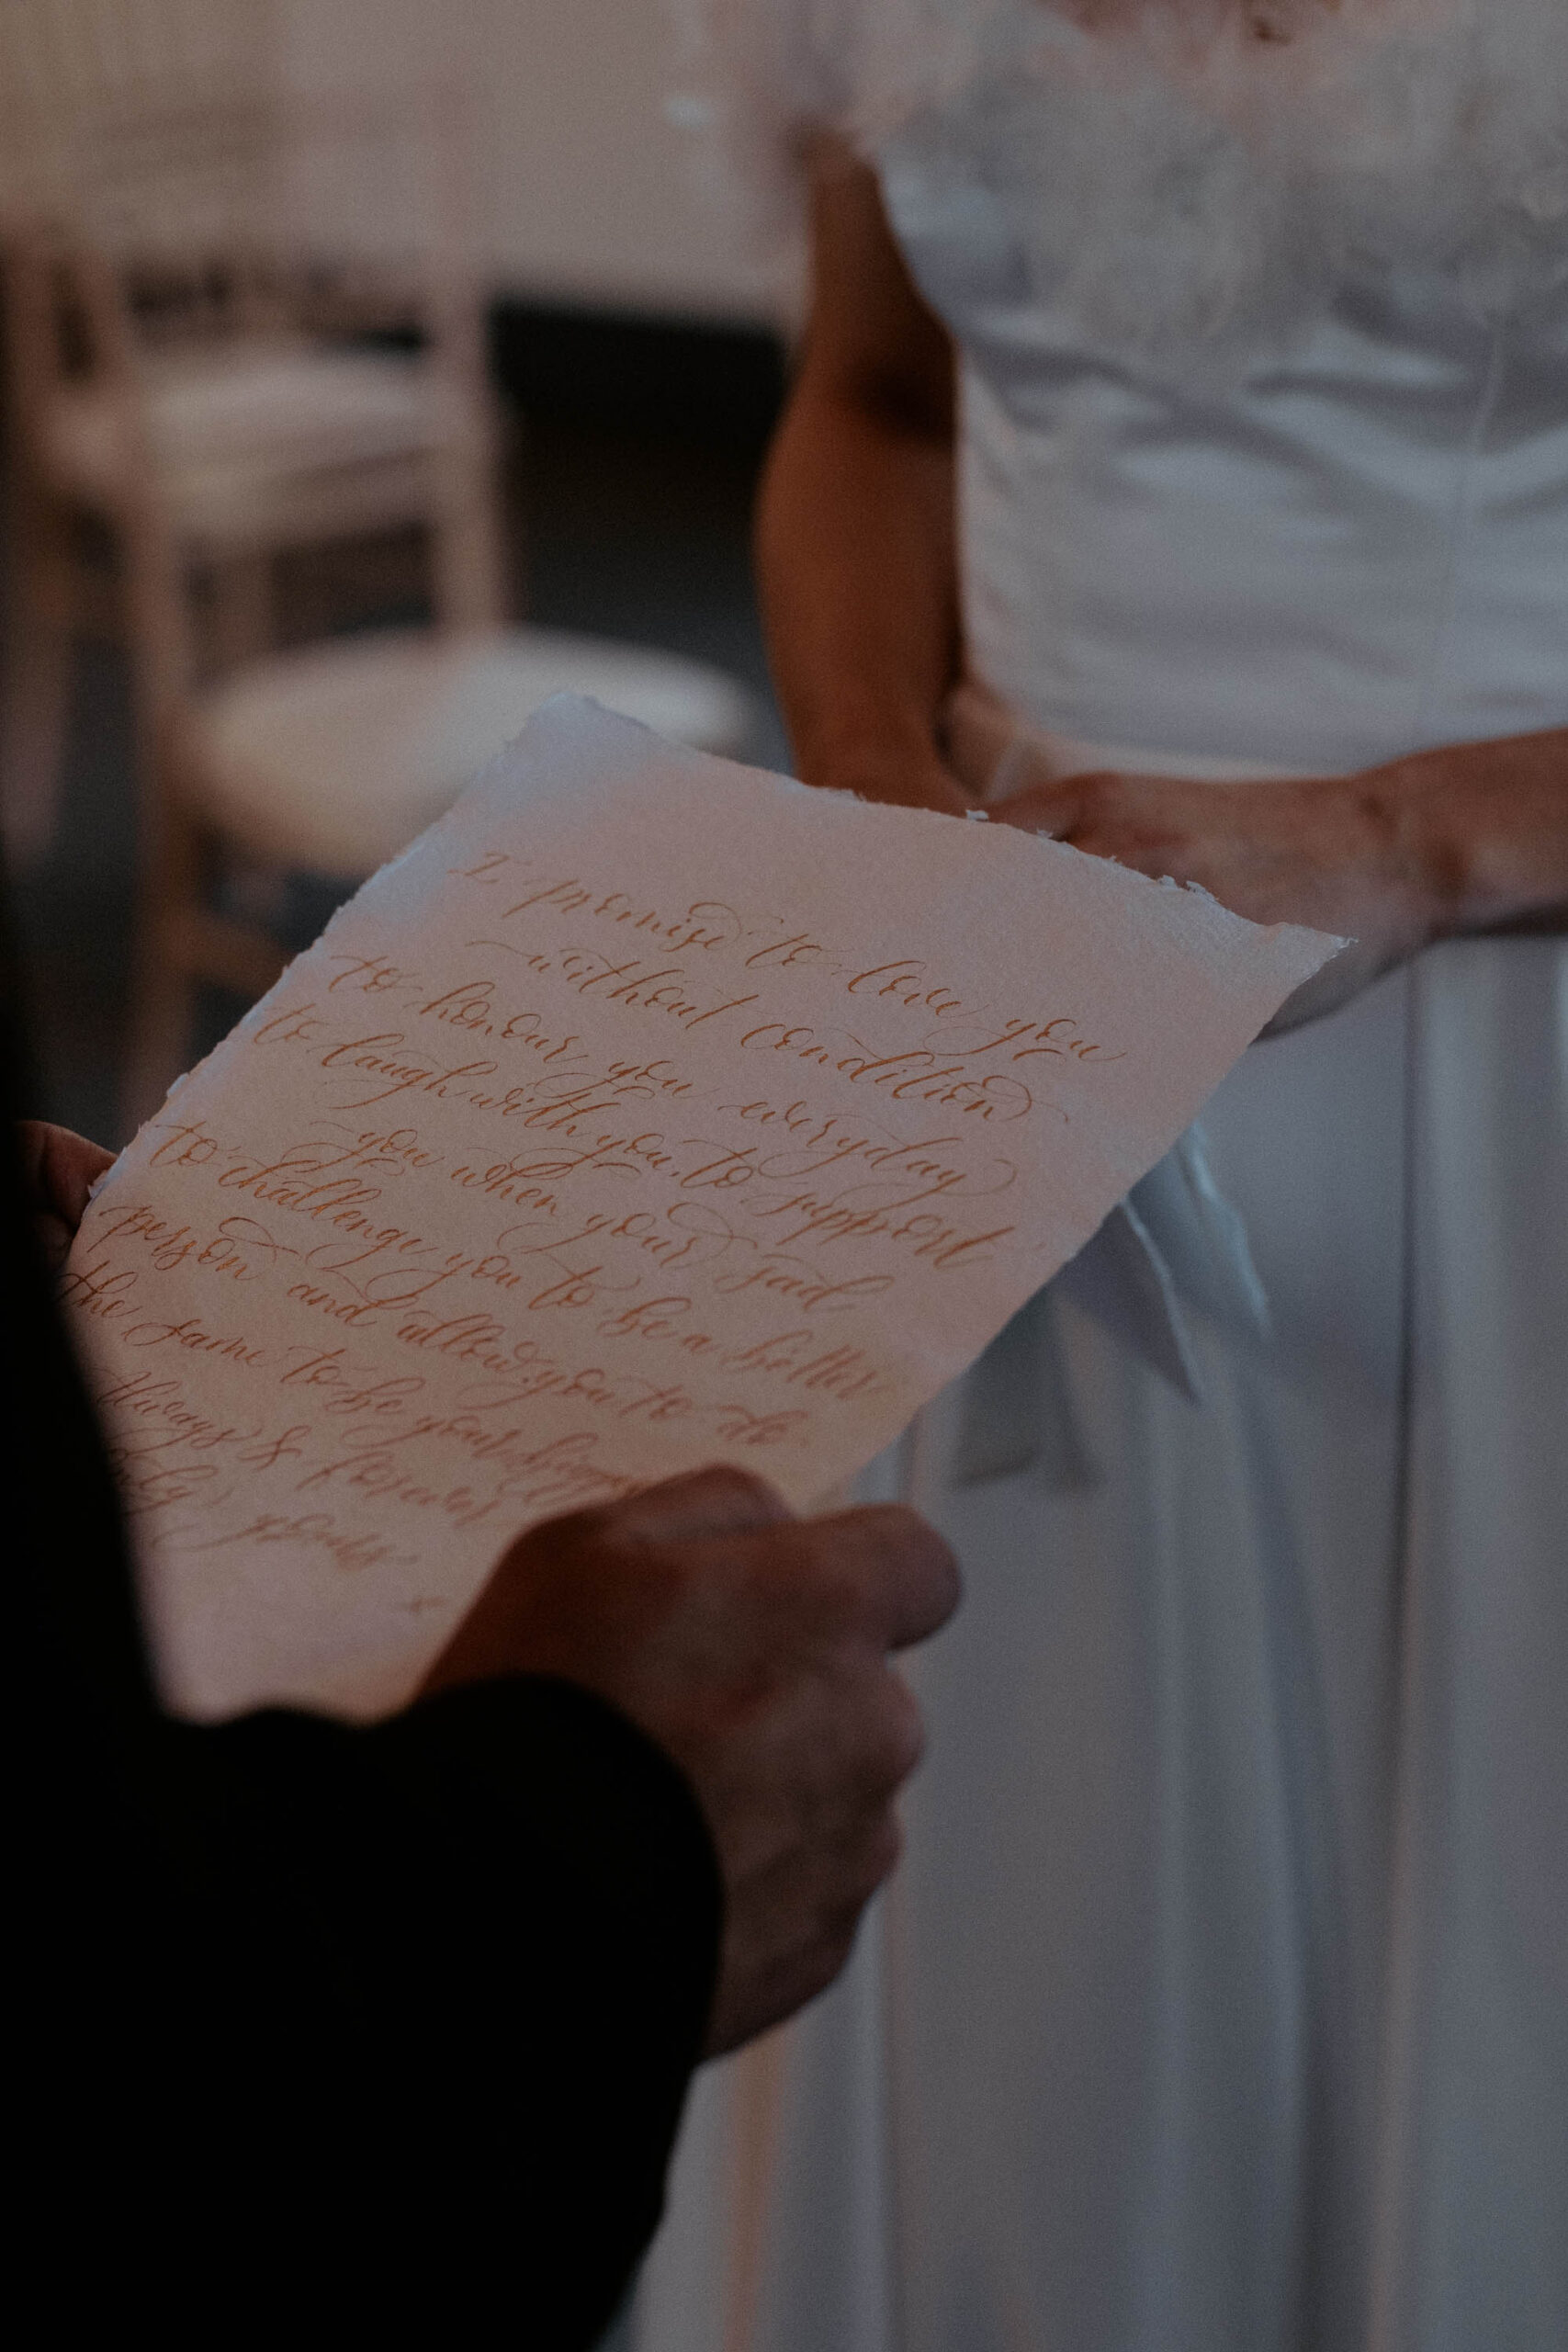 I promise to love you
without condition
to honour you everyday
to laugh with you, to support
you when your sad,
to challenge you to be a better
person and allow you to do
the same to be your
Always & forever
yours
x